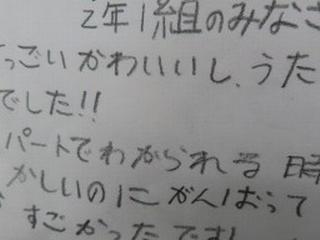 2年1組のみなさ
っごいかわいいし、うた
でした!!
パートでわかられる時
かしいのにがんばって
すごかったです!